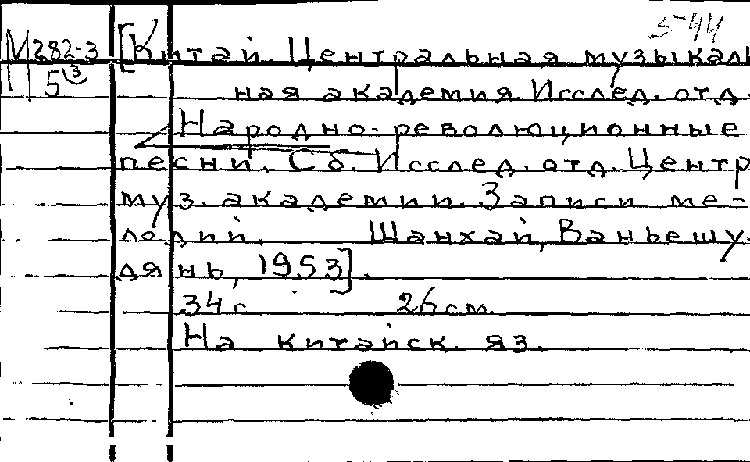 5-44
М282-3 [Китай. Центральная музыкаль
5(3) ная академия. Исслед. отд.
Народно-революционные
песни. Сб. Исслед. отд. Центр.
муз. академии. Записи ме-
лодий. Шанхай, Ваньешу-
дянь, 1953].
34 с. 26 см.
На китайск. яз.